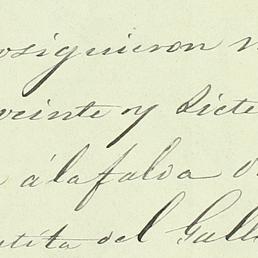 osiguieron
veinte y siete
á la falda
tita del Gall